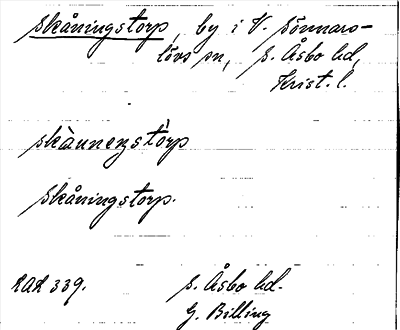 Skåningstorp, by i V. Sönnars-
lövs sn, S. Åsbo hd,
Krist. l.
skànnenstòrp
Skåningstorp.
RAÄ 339. S. Åsbo hd.
G. Billing